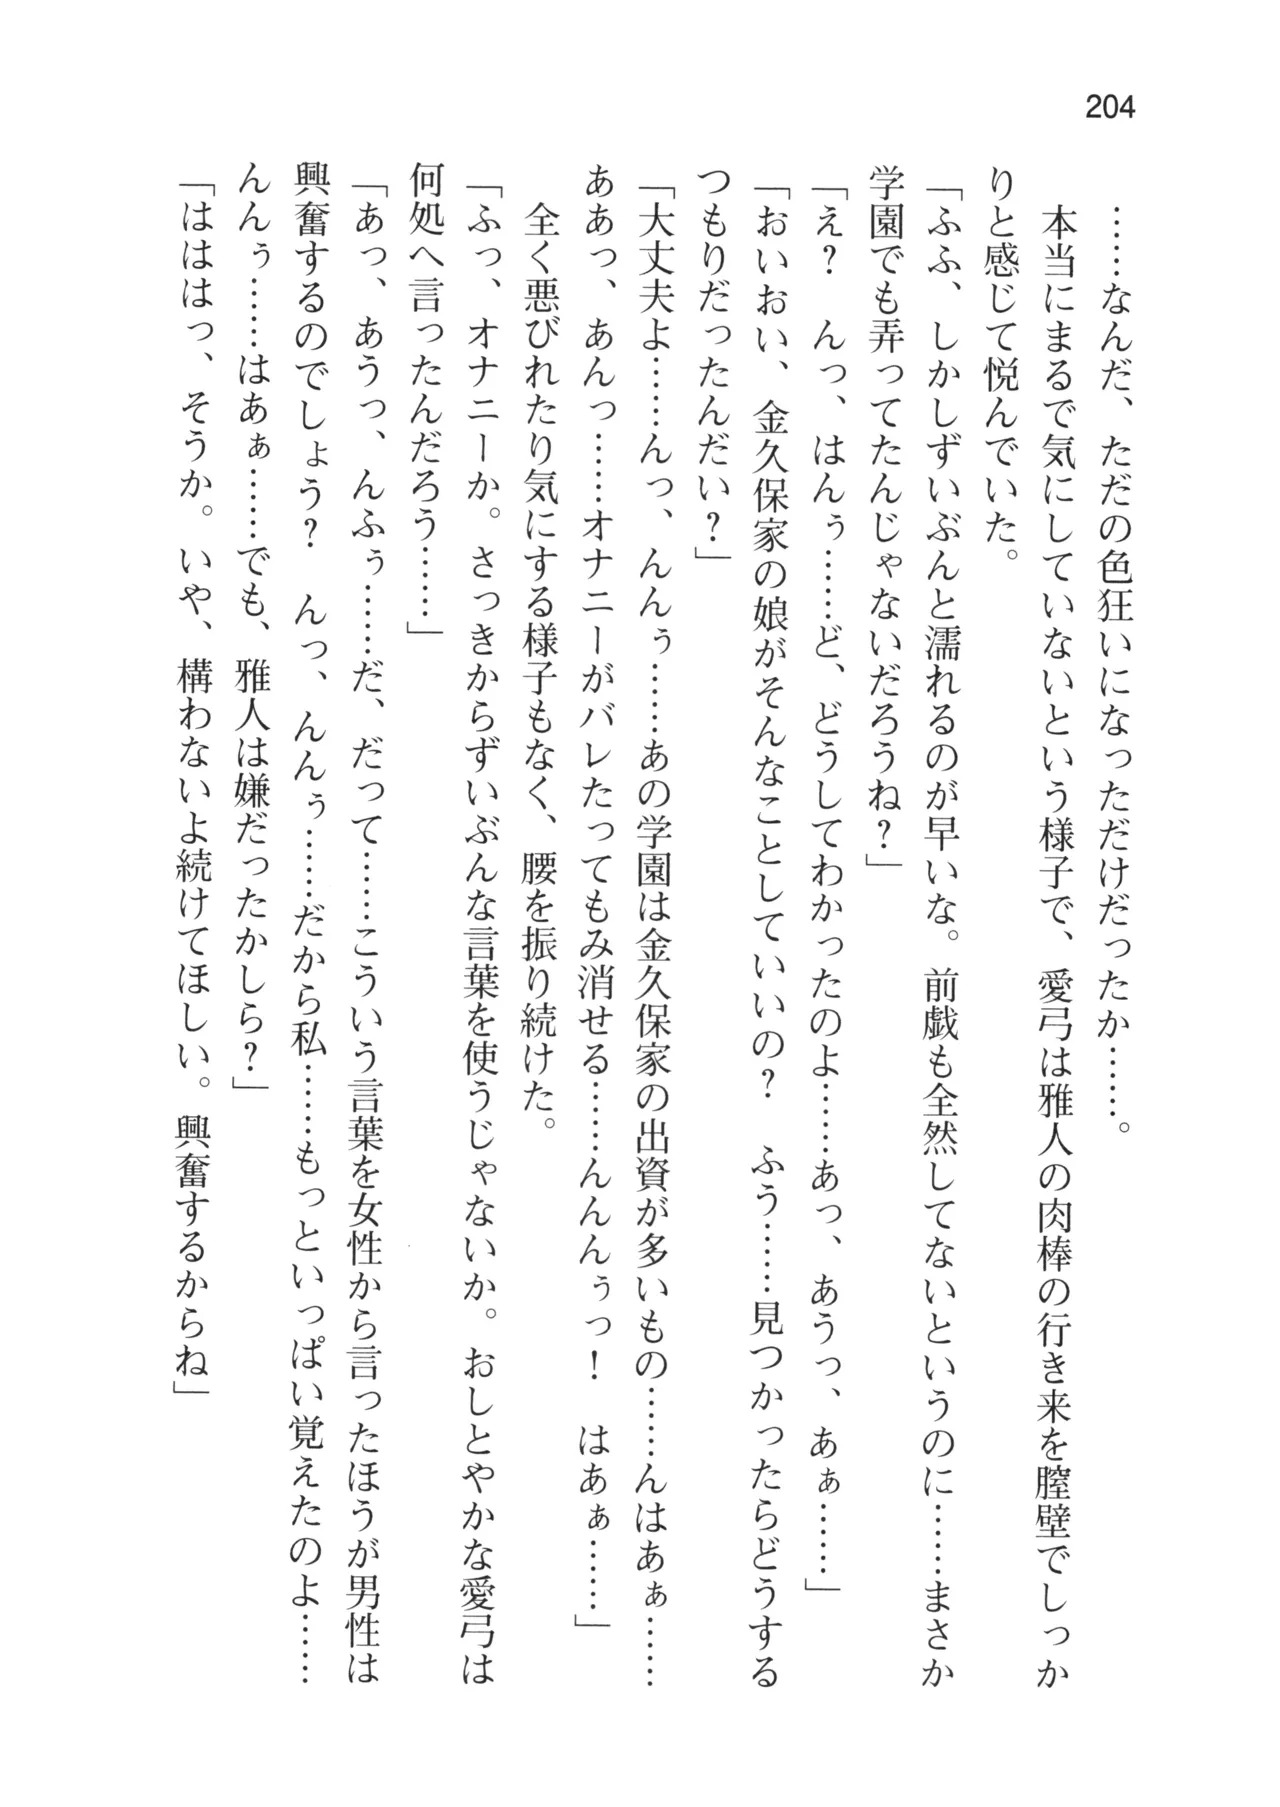 204
……なんだ、ただの色狂いになっただけだったか……。
本当にまるで気にしていないという様子で、愛弓は雅人の肉棒の行き来を膣壁でしっか
りと感じて悦んでいた。
「ふふ、しかしずいぶんと濡れるのが早いな。前戯も全然してないというのに……まさか
学園でも弄ってたんじゃないだろうね？」
「え？　んっ、はんぅ……ど、どうしてわかったのよ……あっ、あうっ、あぁ……」
「おいおい、金久保家の娘がそんなことしていいの？　ふう……見つかったらどうする
つもりだったんだい？」
「大丈夫よ……んっ、んんぅ……あの学園は金久保家の出資が多いもの……んはあぁ……
ああっ、あんっ……オナニーがバレたってもみ消せる……んんんぅっ！　はあぁ……」
全く悪びれたり気にする様子もなく、腰を振り続けた。
「ふっ、オナニーか。さっきからずいぶんな言葉を使うじゃないか。おしとやかな愛弓は
何処へ言ったんだろう……」
「あっ、あうっ、んふぅ……だ、だって……こういう言葉を女性から言ったほうが男性は
興奮するのでしょう？　んっ、んんぅ……だから私……もっといっぱい覚えたのよ……
んんぅ……はあぁ……でも、雅人は嫌だったかしら？」
「はははっ、そうか。いや、構わないよ続けてほしい。興奮するからね」